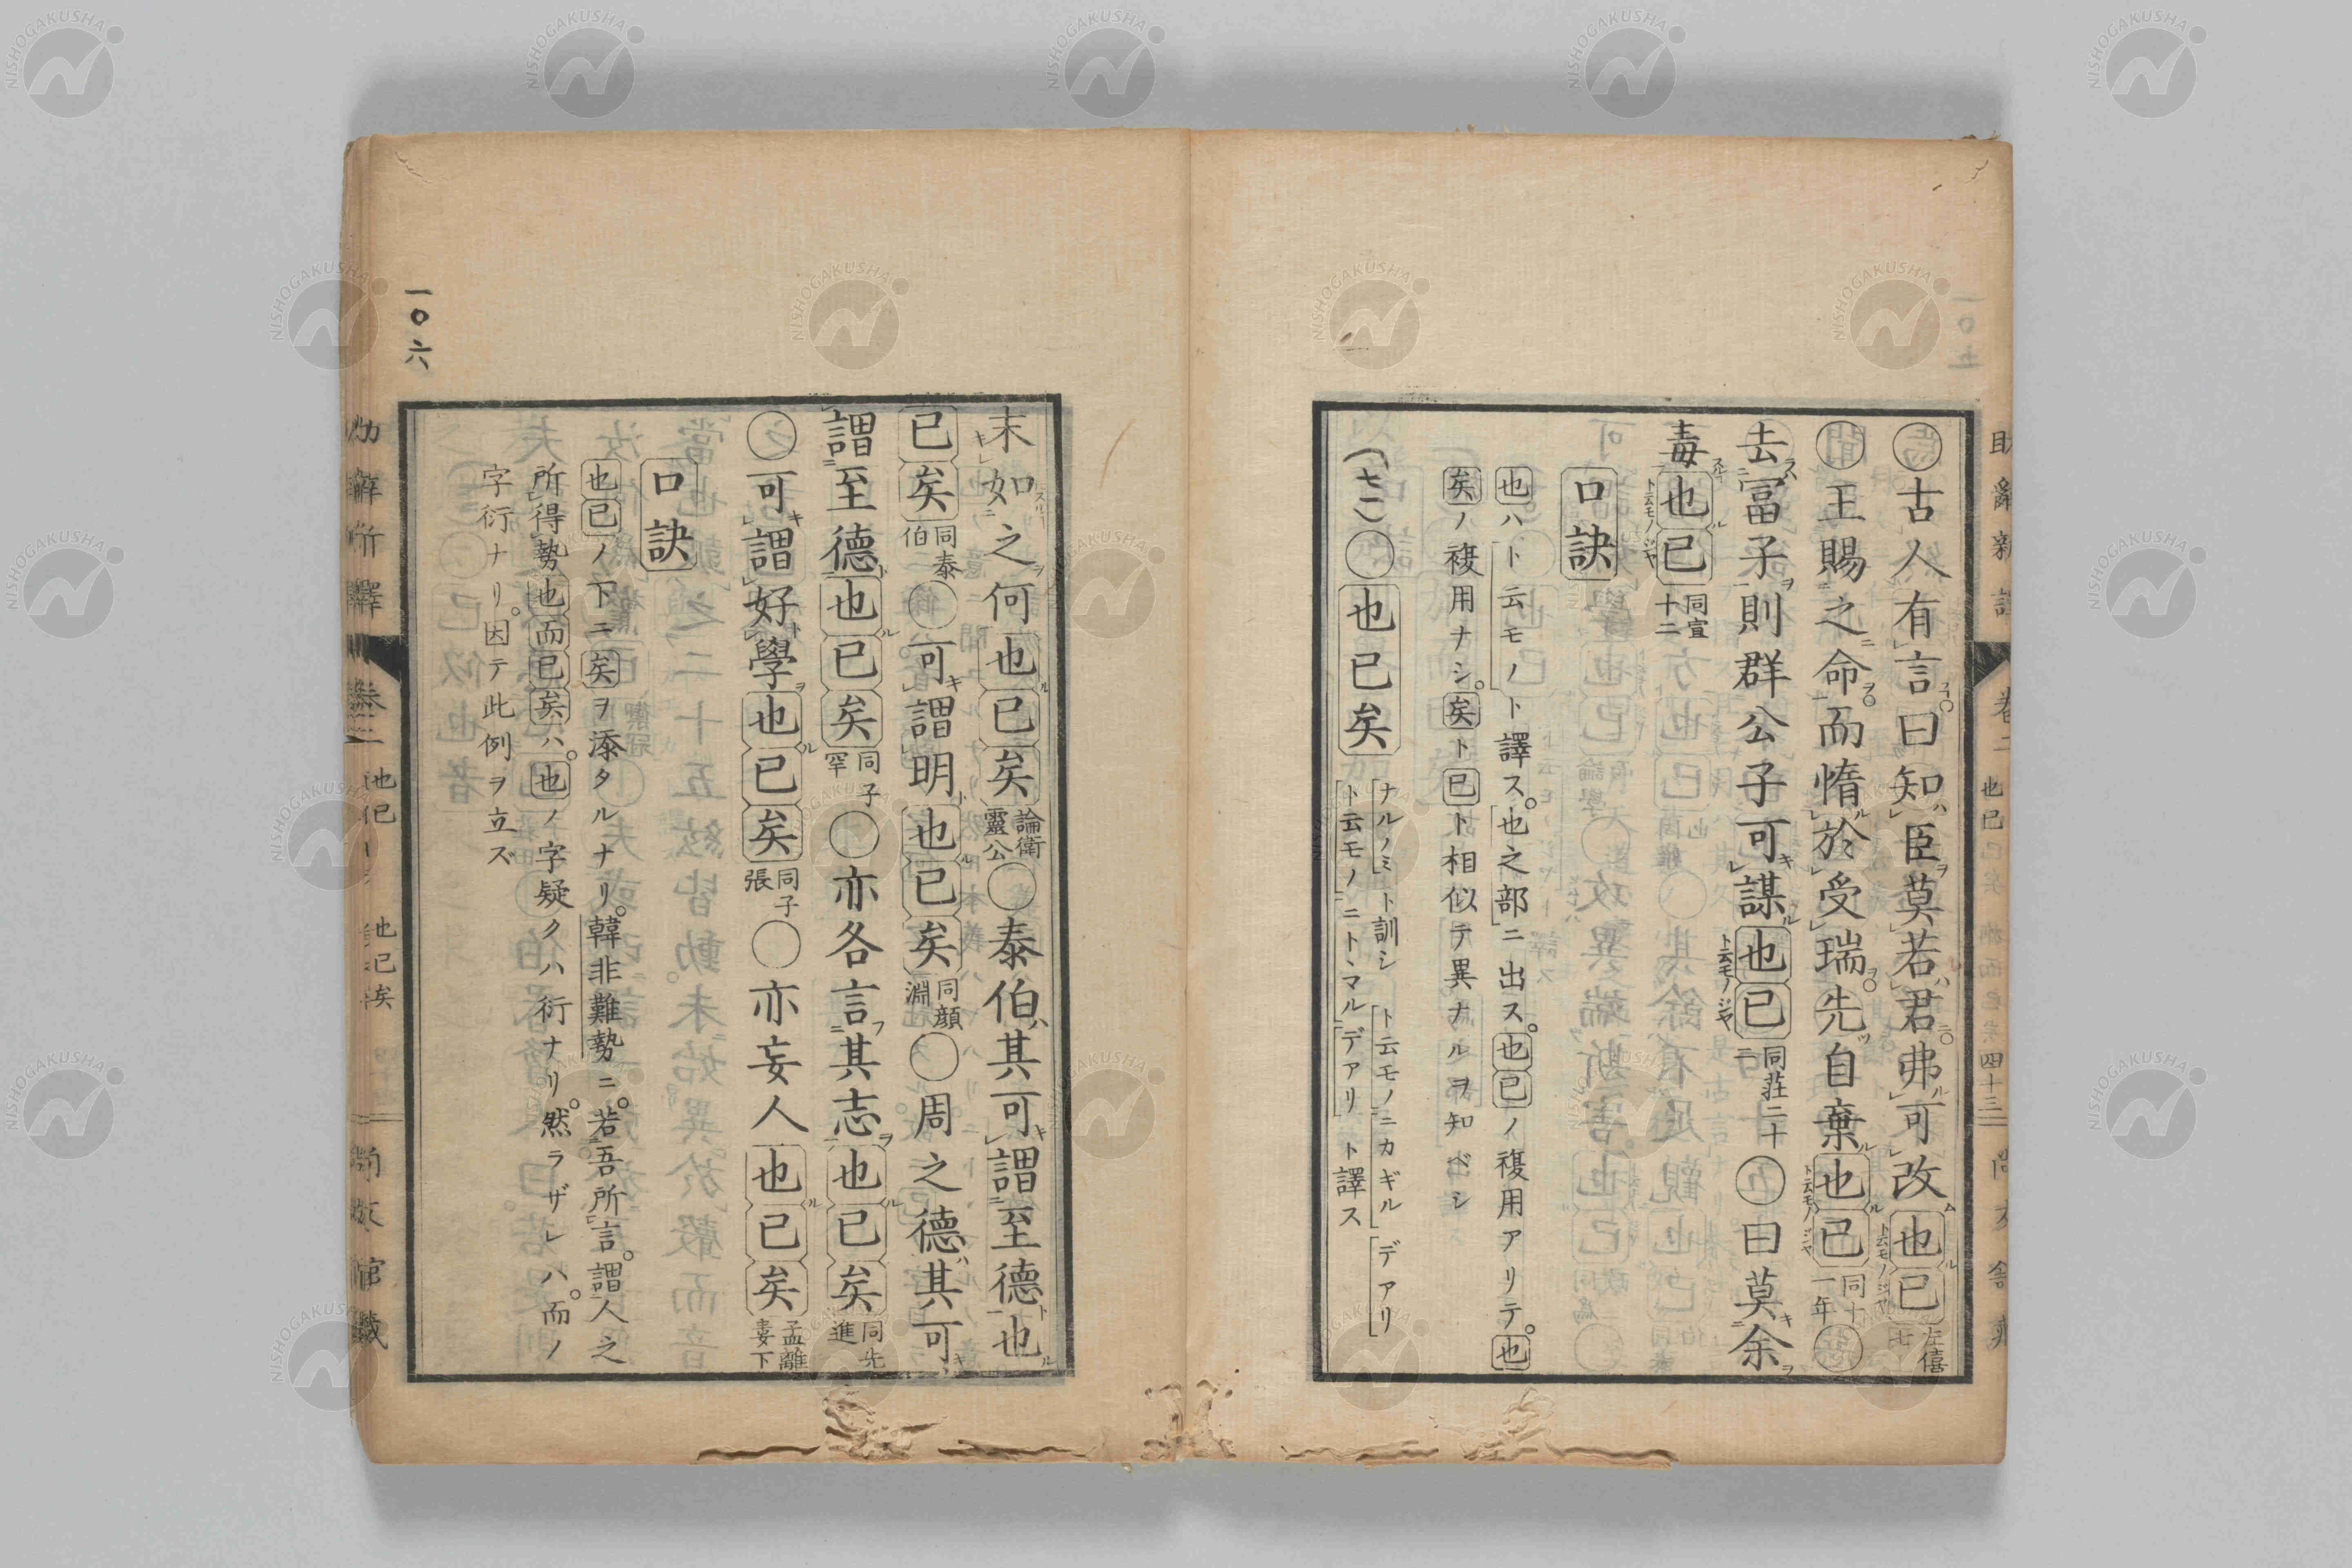 ○古人有言曰知臣莫若君弗可改也已左僖七
○王賜之命而惰於受瑞先自棄也已同十一年○
去富子則群公子可謀也已同莊二十三○曰莫余
毒也已同宣十二
口訣
也ハト云モノト譯ス。也之部ニ出ス。也已ノ複用アリテ。也
矣ノ複用ナシ。矣ト已ト相似テ異ナルヲ知ベシ
(七一)○也已矣 ナルノミト訓シ ト云モノニカギル デアリ
ト云モノニトヽマル デアリ ト譯ス
末如之何也已矣論衛靈公○泰伯其可謂至德也
已矣同泰伯○可謂明也已矣同顔淵○周之德其可
謂至德也已矣同子罕○亦各言其志也已矣同先進
○可謂好學也已矣同子張○亦妄人也已矣孟離婁下
口訣
也已ノ下ニ矣ヲ添タルナリ。韓非難勢ニ。若吾所言。謂人之
所得勢也而已矣ハ。也ノ字疑クハ衍ナリ。然ラザレハ。而ノ
字衍ナリ。因テ此例ヲ立ズ
一〇六
卷二
也已
也已矣
四十三
NISHOGAKUSHA